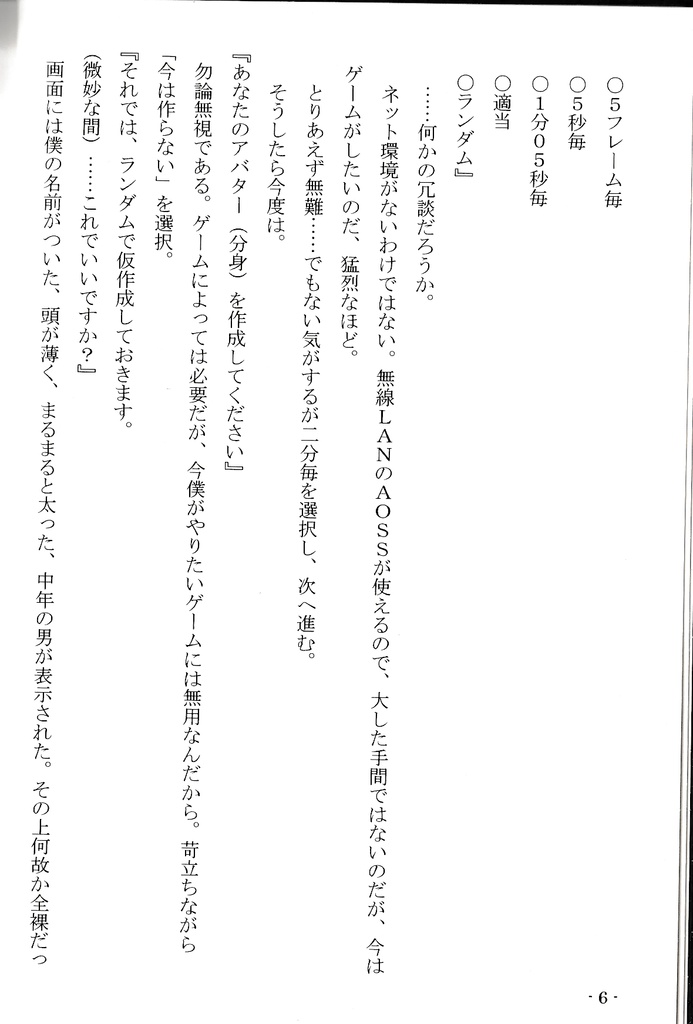 ○５フレーム毎
○５秒毎
○１分０５秒毎
○適当
○ランダム』
……何かの冗談だろうか。
ネット環境がないわけではない。無線ＬＡＮのＡＯＳＳが使えるので、大した手間ではないのだが、今は
ゲームがしたいのだ、猛烈なほど。
とりあえず無難……でもない気がするが二分毎を選択し、次へ進む。
そうしたら今度は。
『あなたのアバター（分身）を作成してください』
勿論無視である。ゲームによっては必要だが、今僕がやりたいゲームには無用なんだから。苛立ちながら
「今は作らない」を選択。
『それでは、ランダムで仮作成しておきます。
（微妙な間）……これでいいですか？』
画面には僕の名前がついた、頭が薄く、まるまると太った、中年の男が表示された。その上何故か全裸だっ
- 6 -